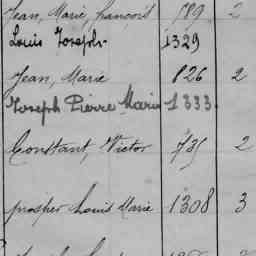 Jean, Marie, francois 789 2
Louis Joseph 1329
Jean, Marie 826 2
Joseph Pierre Marie 1333
Constant, Victor 735 2
prosper Louis Marie 1308 3